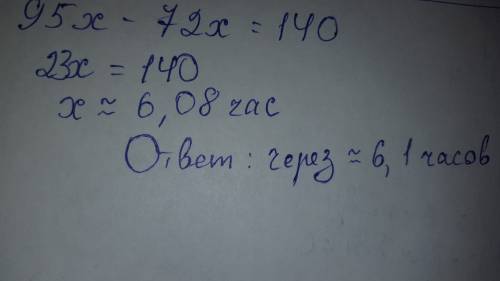 95x - 72x = 140
23x = 140
x ≈ 6,08 час
Ответ: через ≈ 6,1 часов